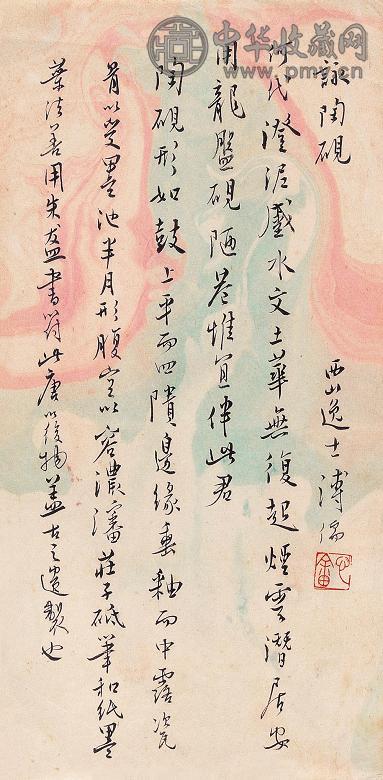 詠陶硯
西山逸士溥儒
心畬
何代澄泥蹙水文土華無復起煙雲潛居安
用龍盤硯陋巷惟宜伴此君
陶硯形如鼓上平而四隤邊緣垂釉而中露瓷
骨以受墨池半月形腹空以容濃瀋莊子砥筆和紙墨
葉法善用朱盋書符此唐以後物蓋古之遺製也
中华收藏网